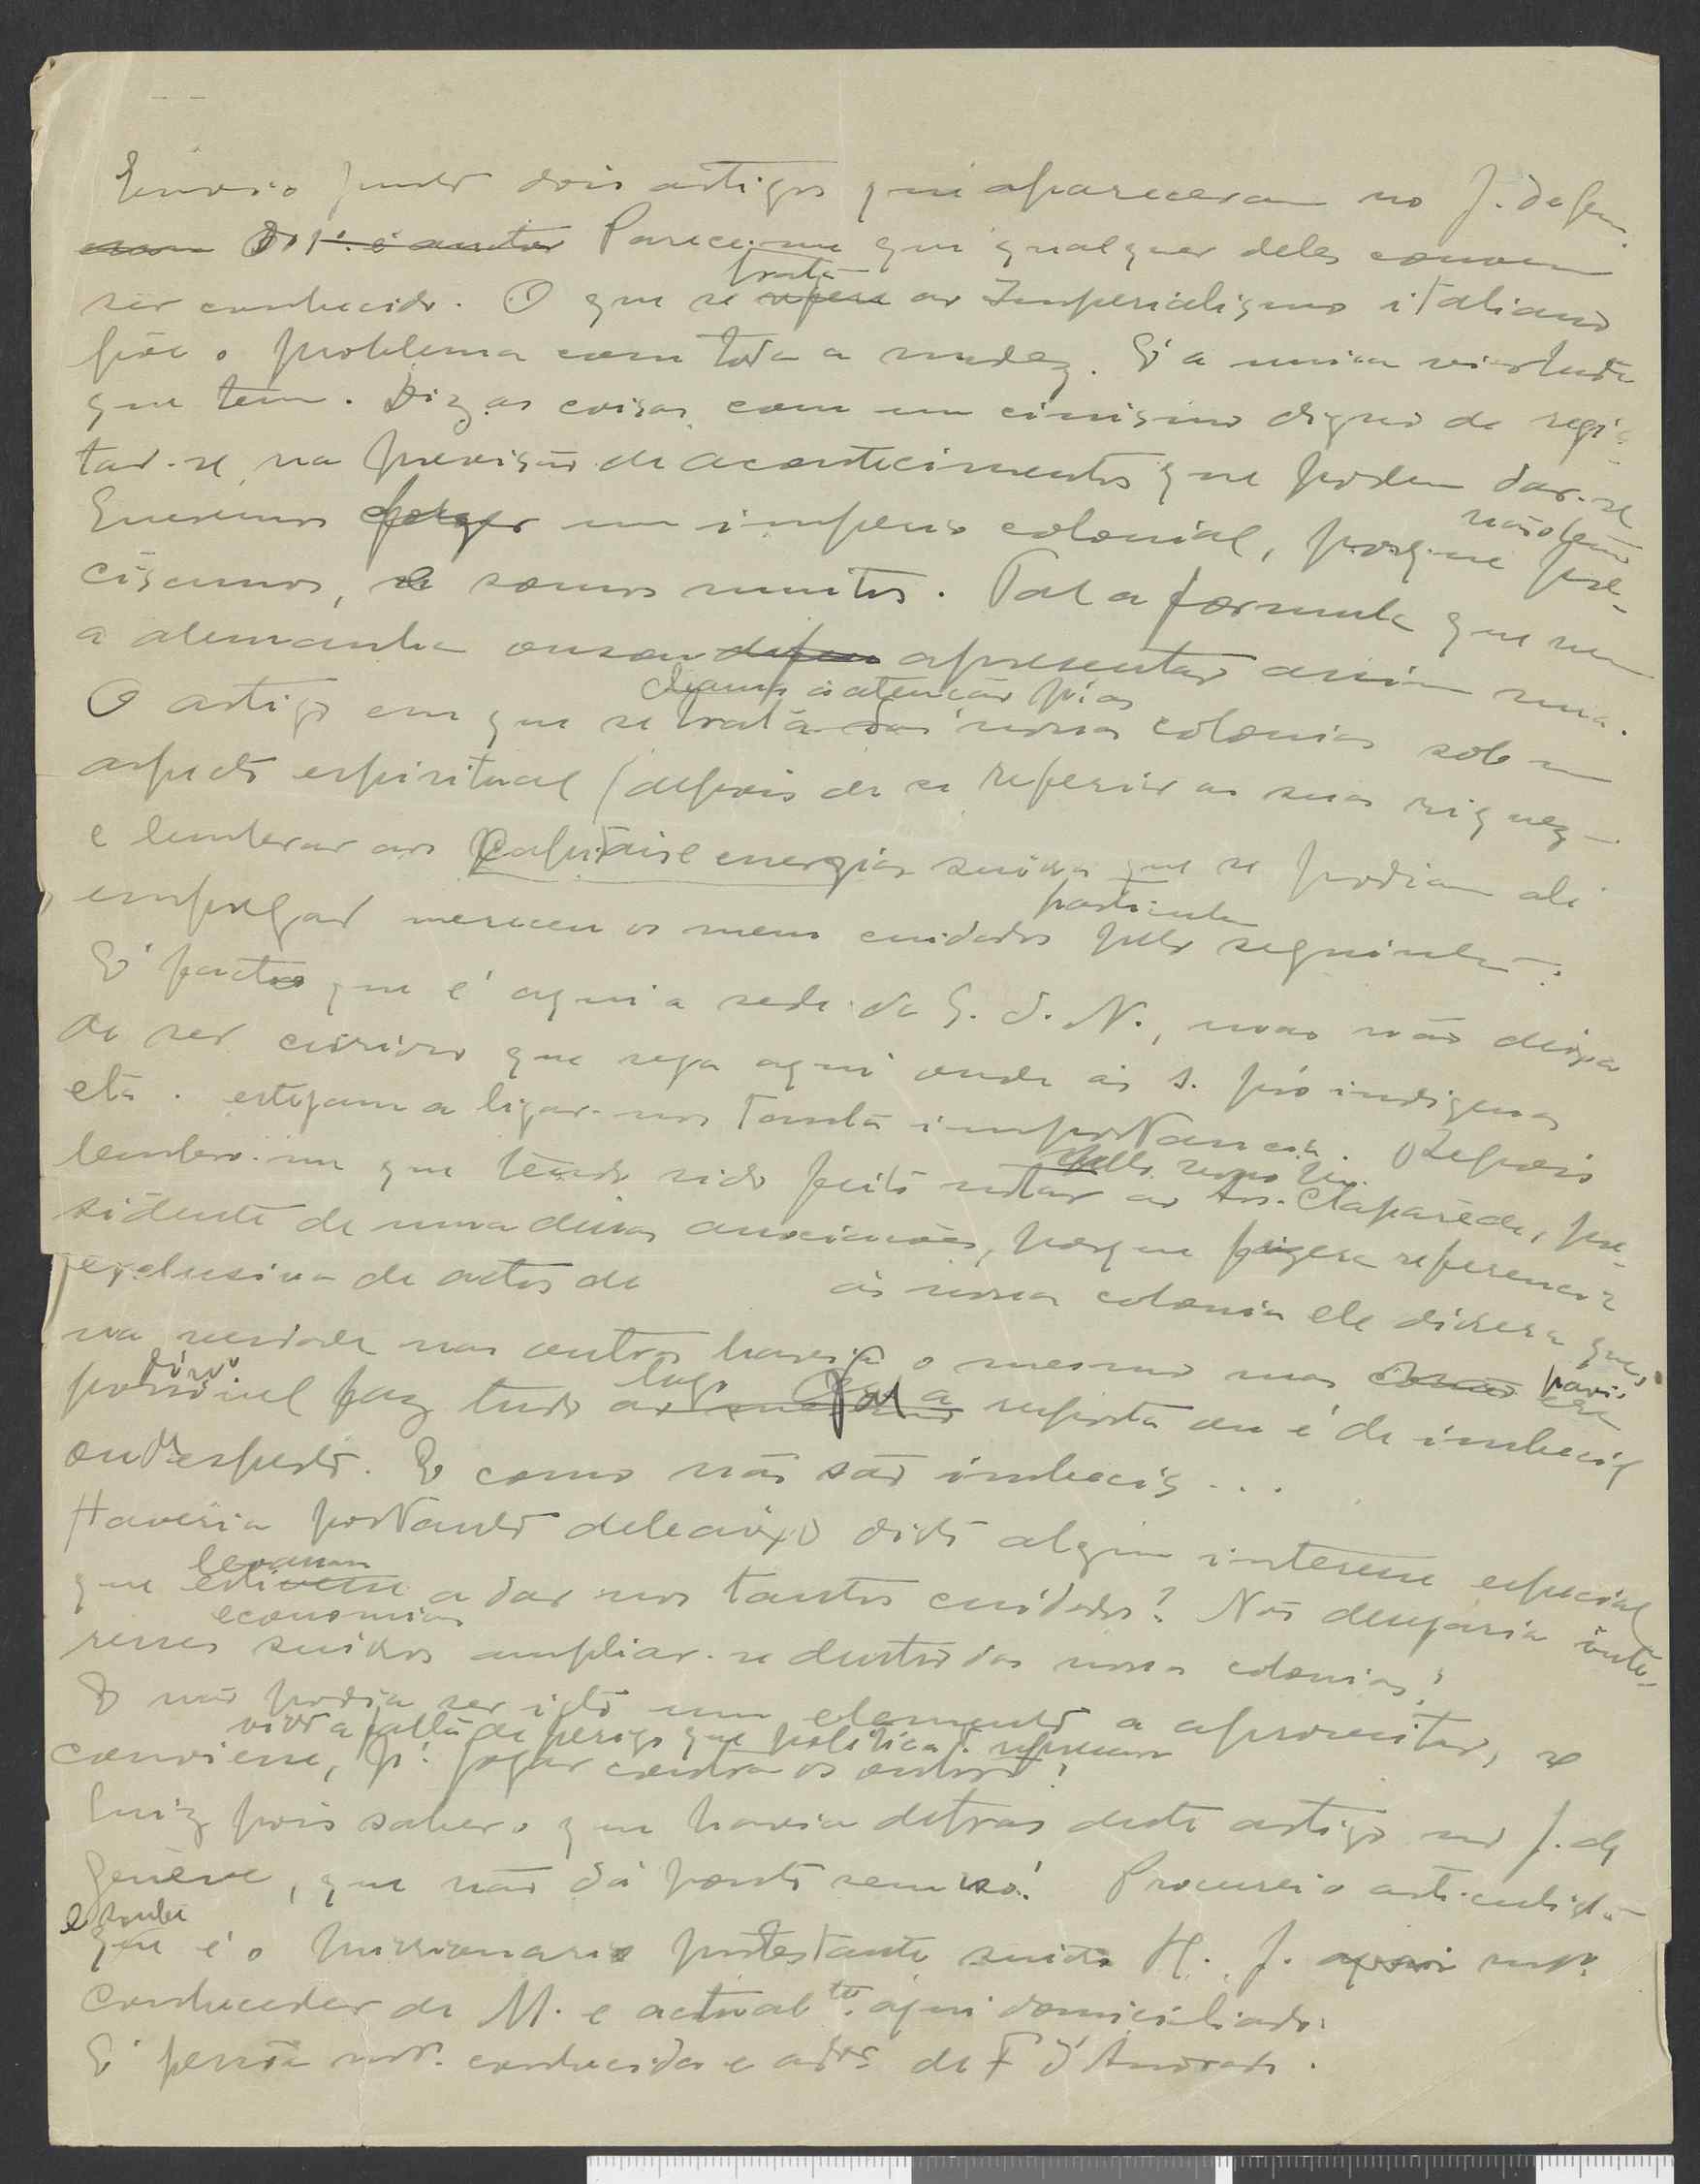 Envio junto dois artigos que apareceram no J. de Gen.
Do 1º. é autor Parece-me que qualquer deles convem
trata
ser conhecido. O que se refere ao Imperialismo italiano
põe o problema com toda a nudez. É a unica virtude
que tem. Diz as coisas com um cinismo digno de regis-
tar-se na previsão de acontecimentos que podem dar-se
não temos
Queremos forger um imperio colonial, porque pre-
cisamos, e somos muitos. Tal a formula que nem
a alemanha ousou apresentar assim nua.
chama a atenção p.ª as
O artigo em que se trata das nossas colonias sob um
aspecto espiritual (depois de se referir as suas riquezas
e lembrar aos Capitais e energias suissas que se podiam ali
particular
empregar mereceu os meus cuidados pelo seguinte:
É facto que é aqui a sede da S. d. N., mas não deixa
de ser curioso que seja aqui onde as s. pró indigenas
etc. estejam a ligar-nos tanta importancia. Depois
lembro-me que tendo sido feito notar ao Claparède, pre-
sidente de uma dessas associações, porque fizera referencia
exclusiva de actos de às nossas colonias ele dissera que,
na verdade nas outras havia o mesmo mas
possivel faz tudo logo Tal a resposta ou é de imbecil
ou de esperto. E como não são imbecis...
Haveria portanto debaixo disto algum interesse especial
levassem
que estivesse a dar-nos tantos cuidados? Não desejaria inte-
economicos
resses suissos ampliar-se dentro das nossas colonias?
E não podia ser isto um elemento a aproveitar, se
visto a falta de perigo que politicamt. representa
conviesse, p.ª jogar contra os outros?
Quiz pois saber o que havia detras deste artigo no J. de
Genève, que não dá ponto sem nó! Procurei o articulista
e soube
que é o missionario protestante suisso H. J. mtº.
conhecedor de M. e actualte. aqui domiciliado.
É pessoa mtº. conhecida e de F d'Andrade.